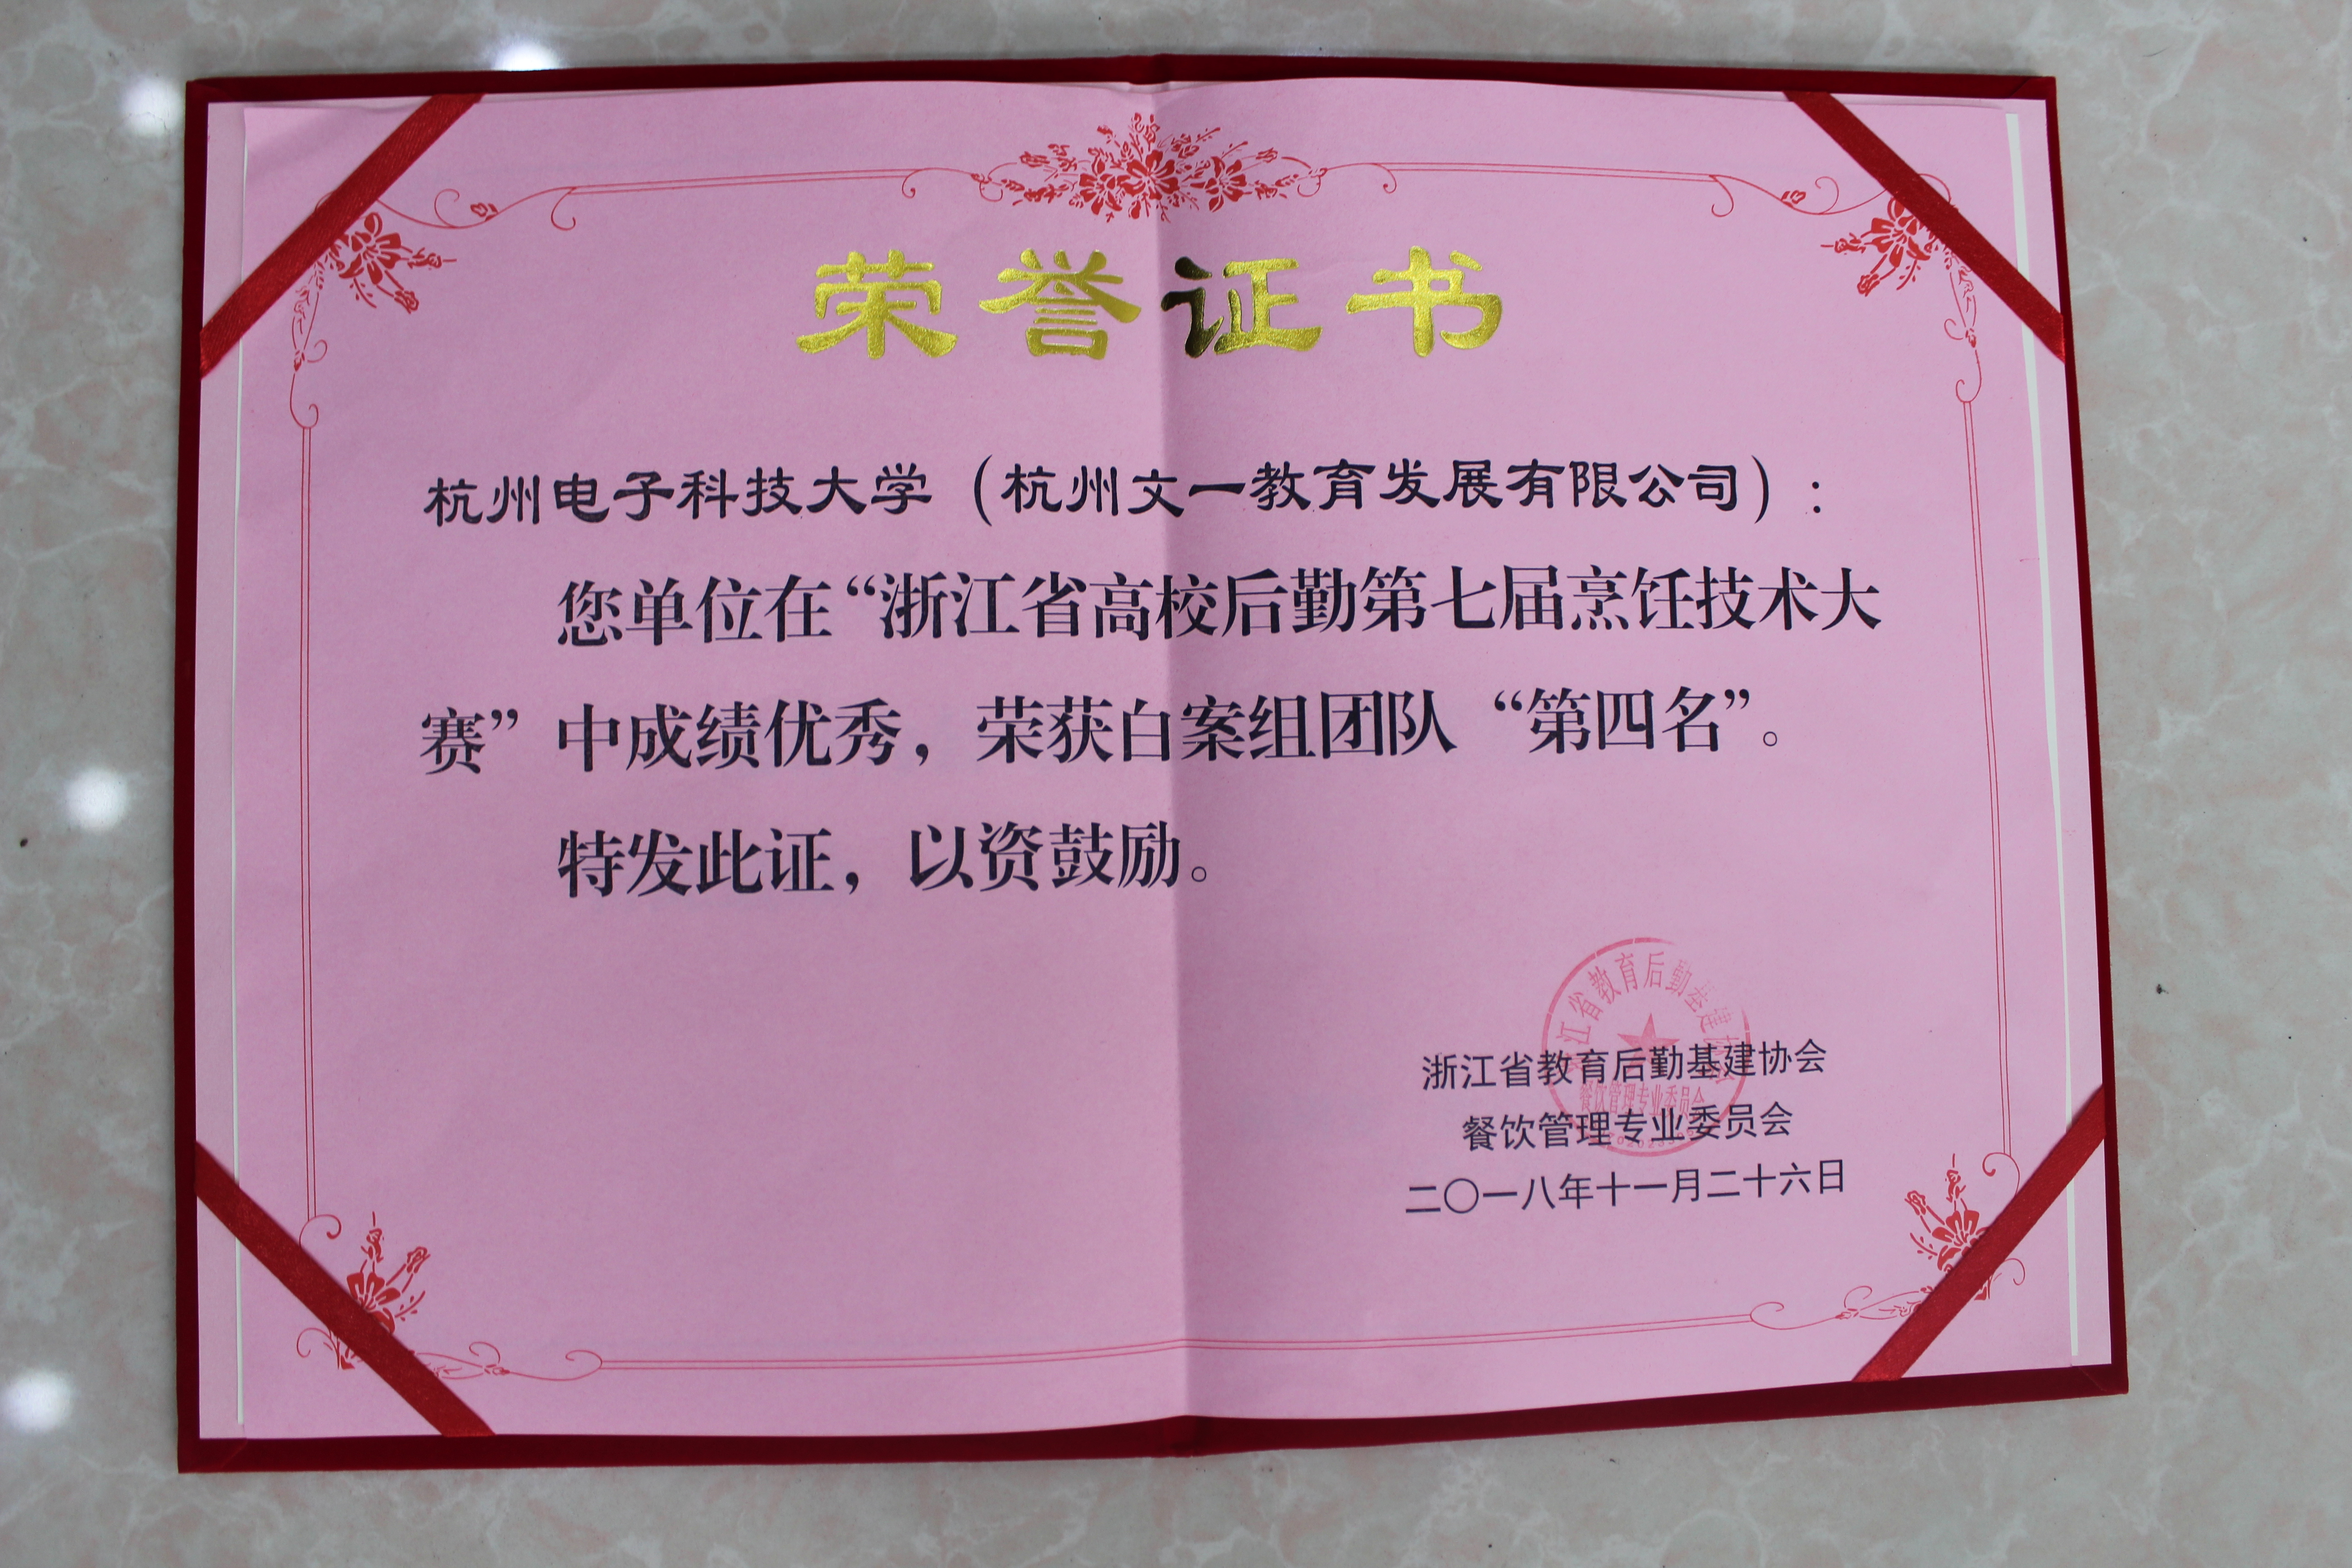 荣誉证书
杭州电子科技大学（杭州文一教育发展有限公司）：
您单位在“浙江省高校后勤第七届烹饪技术大
赛”中成绩优秀，荣获白案组团队“第四名”。
特发此证，以资鼓励。
江省教育后勤基建协会
餐饮管理专业委员会
浙江省教育后勤基建协会
餐饮管理专业委员会
二〇一八年十一月二十六日